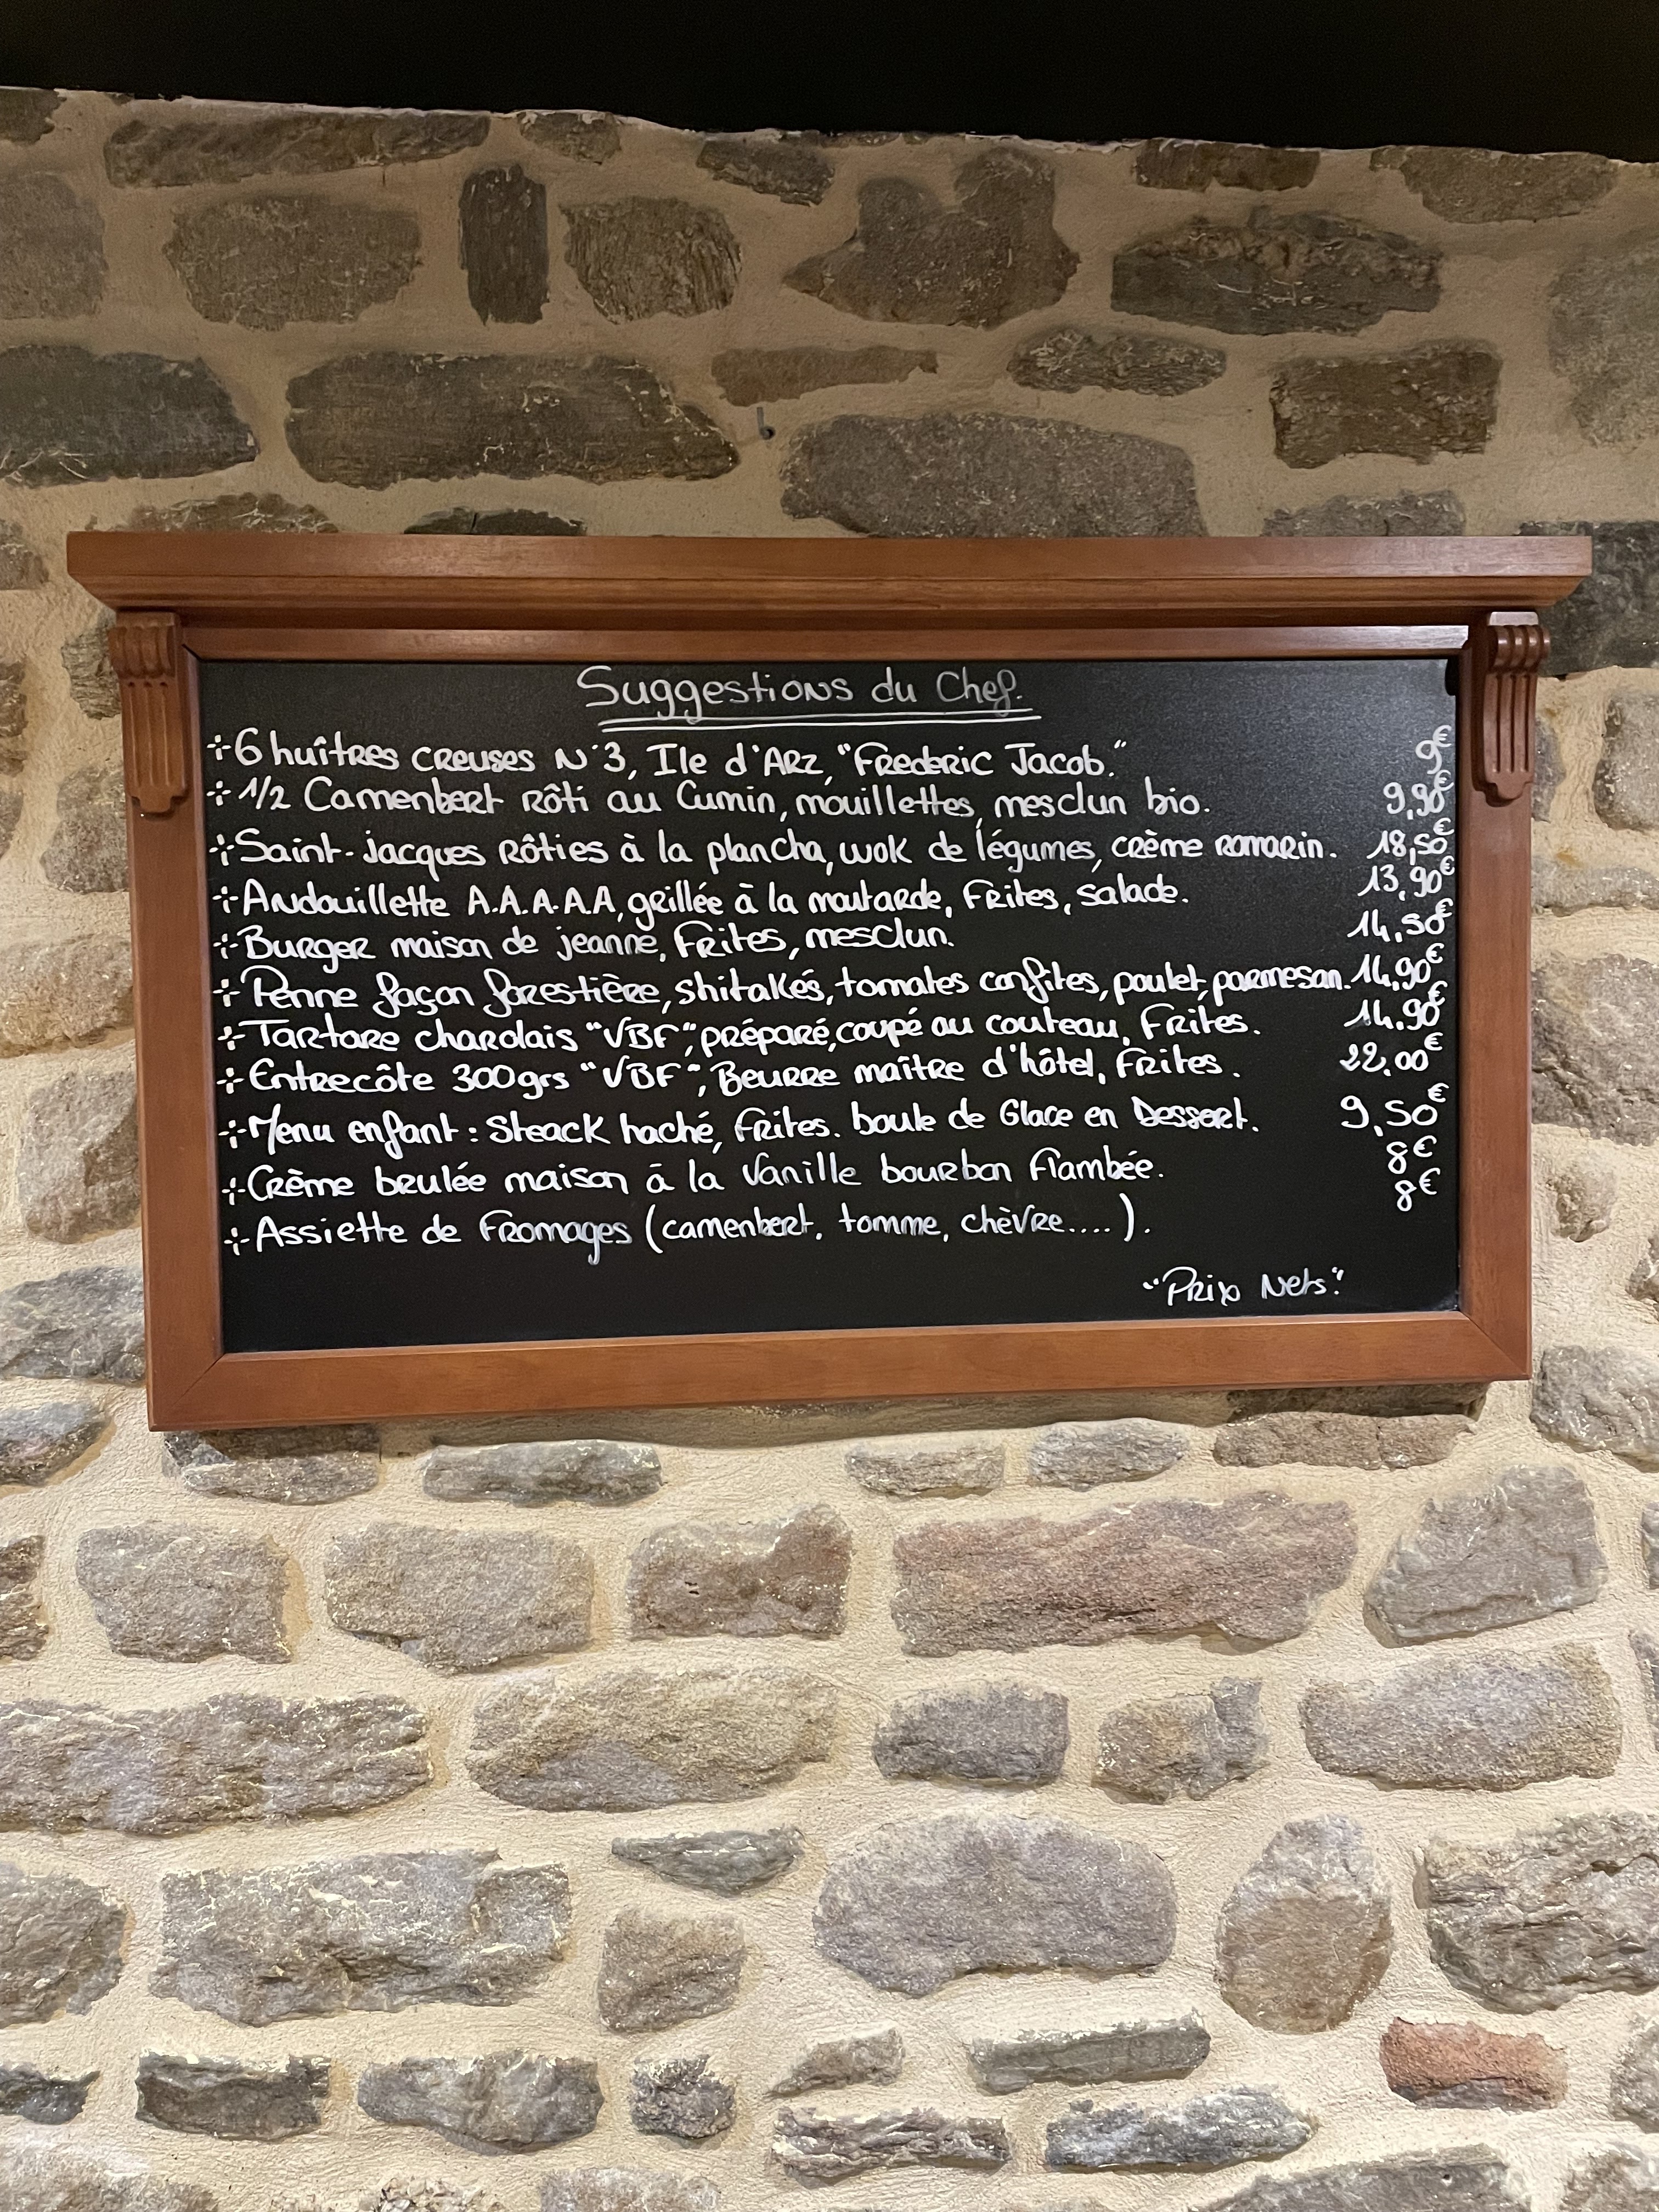 Suggestions du Chef.
÷ 6 huîtres creuses N°3, Ile d'Arz, "Frederic Jacob." 9€
÷ 1/2 Camenbert rôti au Cumin, mouillettes, mesclun bio. 9,90€
÷ Saint-Jacques rôties à la plancha, wok de légumes, crème romarin. 18,50€
÷ Andouillette A.A.A.A.A, grillée à la moutarde, Frites, salade. 13,90€
÷ Burger maison de jeanne, Frites, mesclun. 14,50€
÷ Penne façon forestière, shitakés, tomates confites, poulet, parmesan. 14,90€
÷ Tartare charolais "VBF", préparé, coupé au couteau, Frites. 14,90€
÷ Entrecôte 300grs "VBF", Beurre maître d'hôtel, Frites. 22,00€
÷ Menu enfant : Steack haché, Frites. boule de Glace en Dessert. 9,50€
÷ Crème brulée maison à la Vanille bourbon flambée. 8€
÷ Assiette de Fromages (camenbert, tomme, chèvre....). 8€
"Prix Nets."